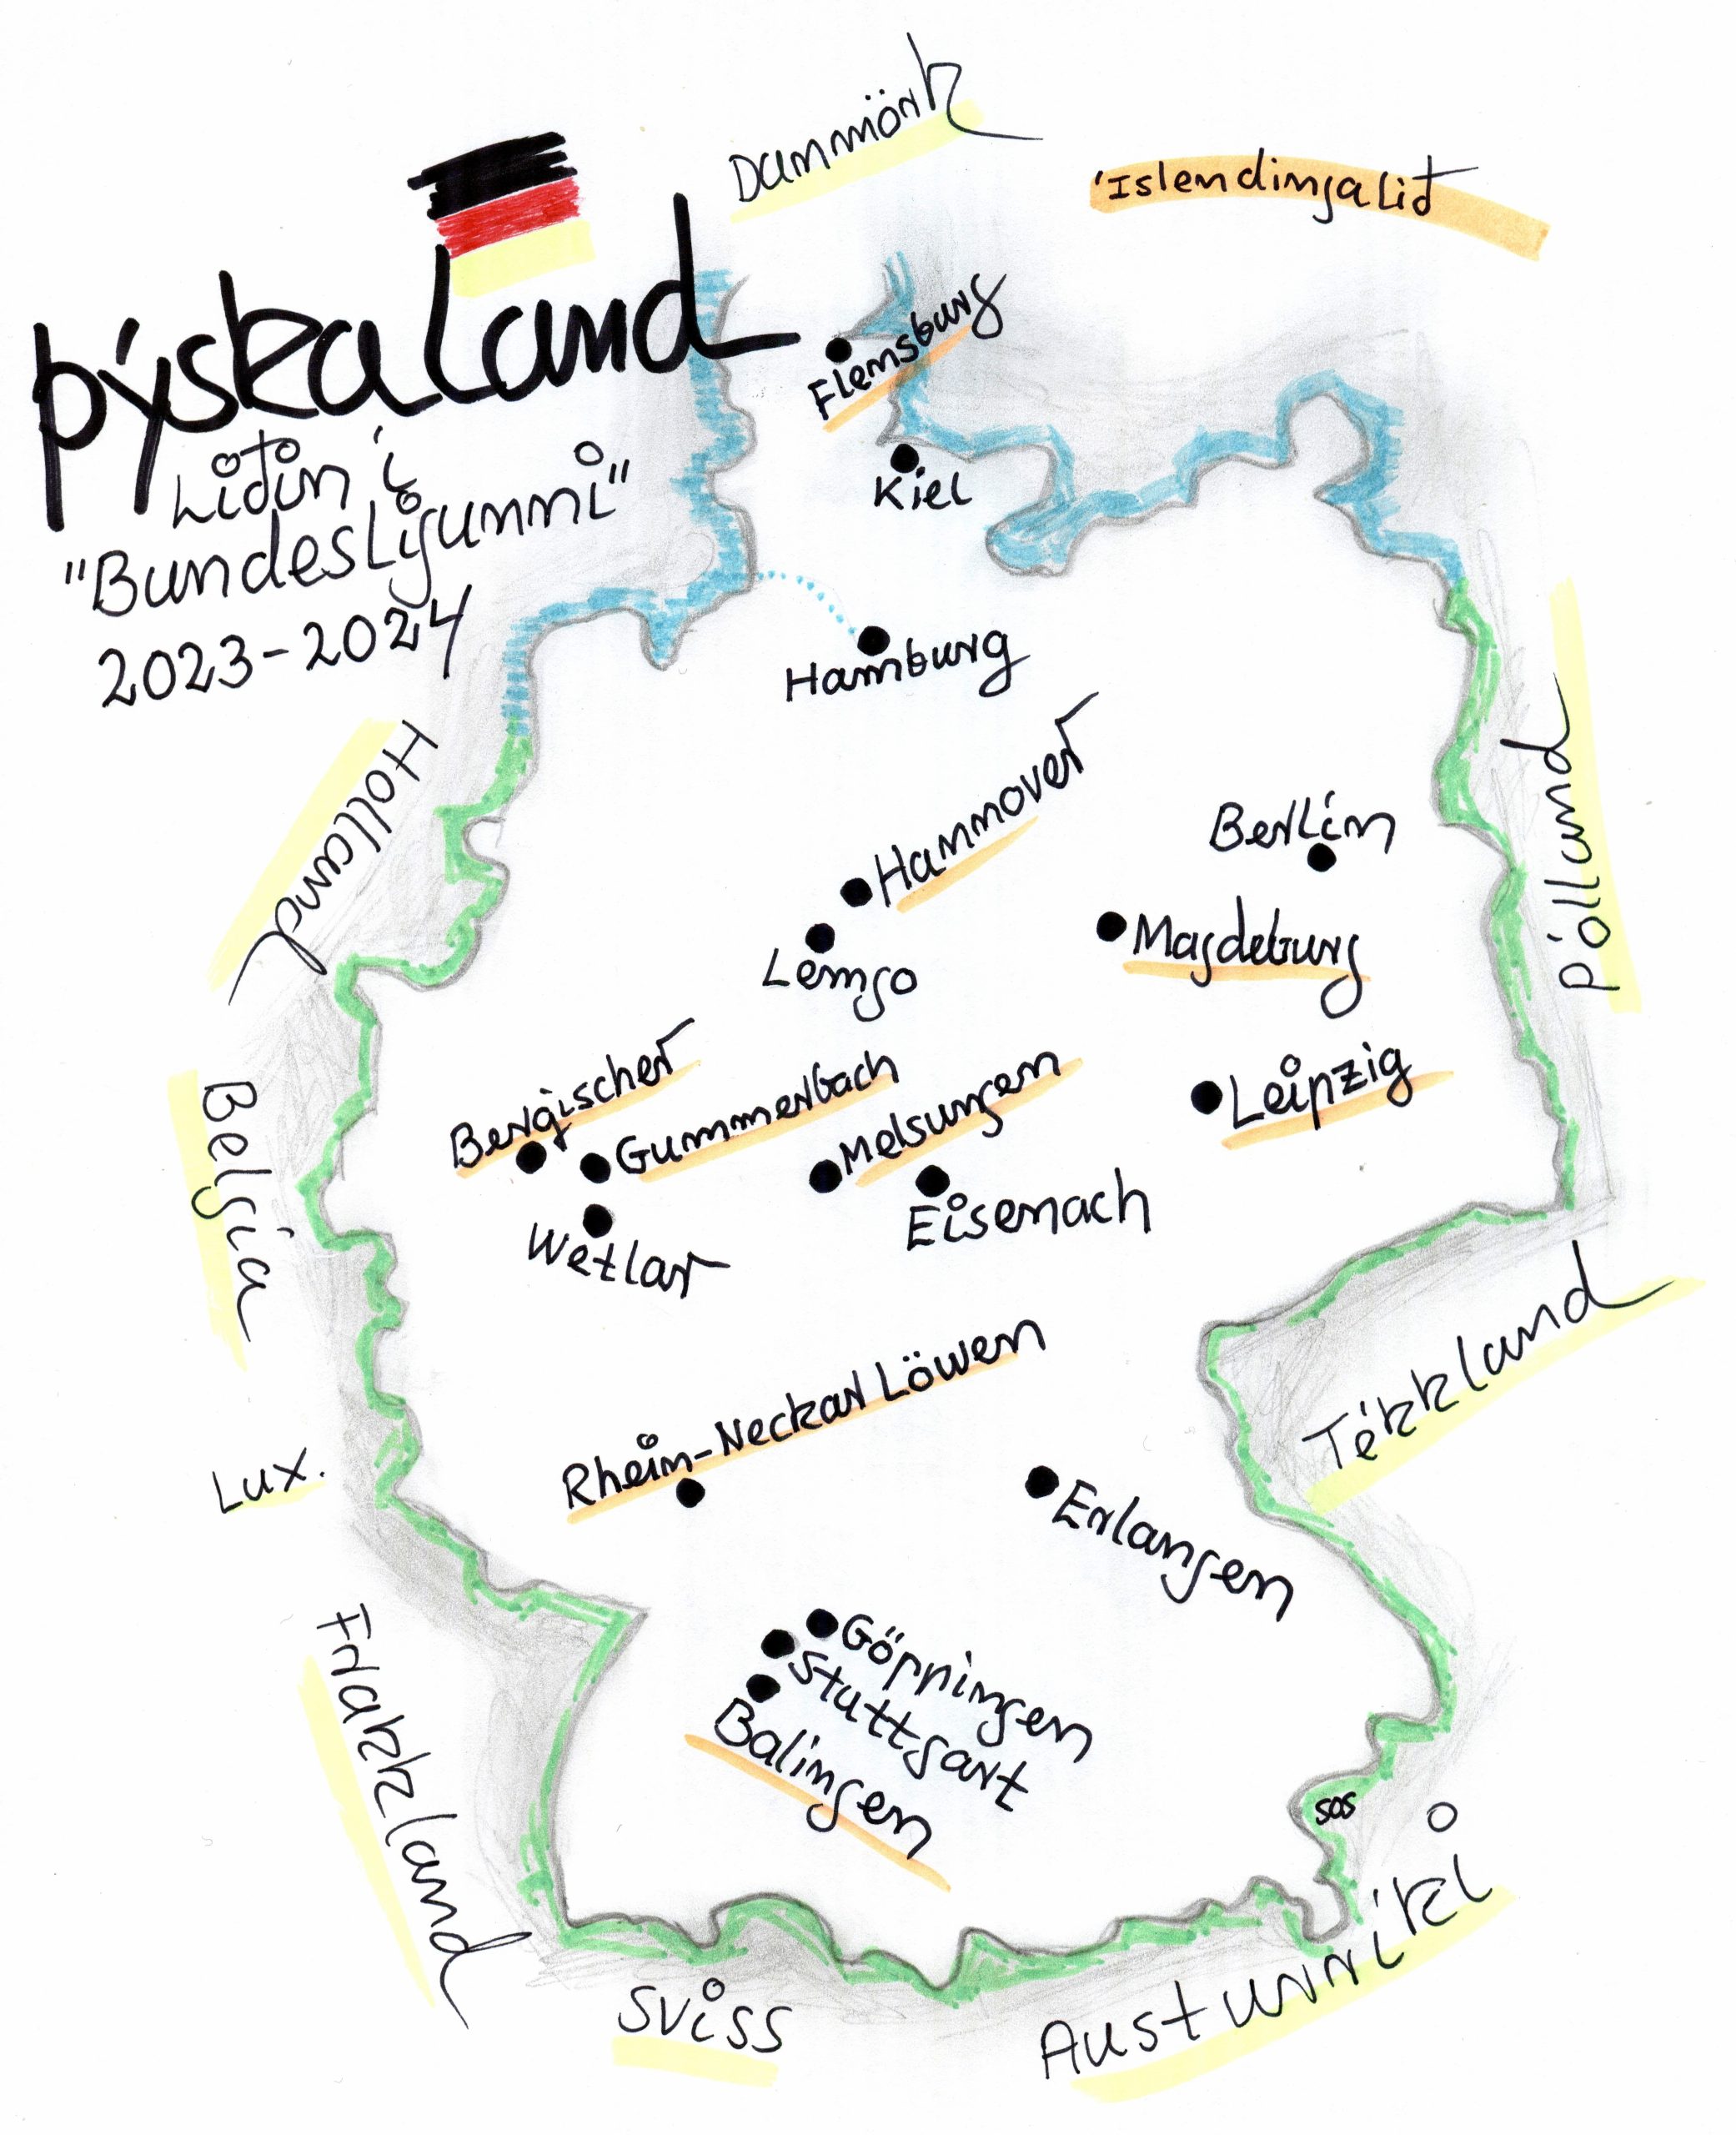 Danmörk
Íslendingalið
Þýskaland
Liðin í
"Bundesligunni"
2023-2024
Flensburg
Kiel
Hamburg
Holland
Hannover
Berlín
Pólland
Lemgo
Magdeburg
Bergischer
Gummersbach
Melsungen
Leipzig
Belgía
Wetlar
Eisenach
Tékkland
Rhein-Neckar Löwen
Lux.
Erlangen
Frakkland
Göppingen
Stuttgart
Balingen
SOS
Sviss
Austurríki